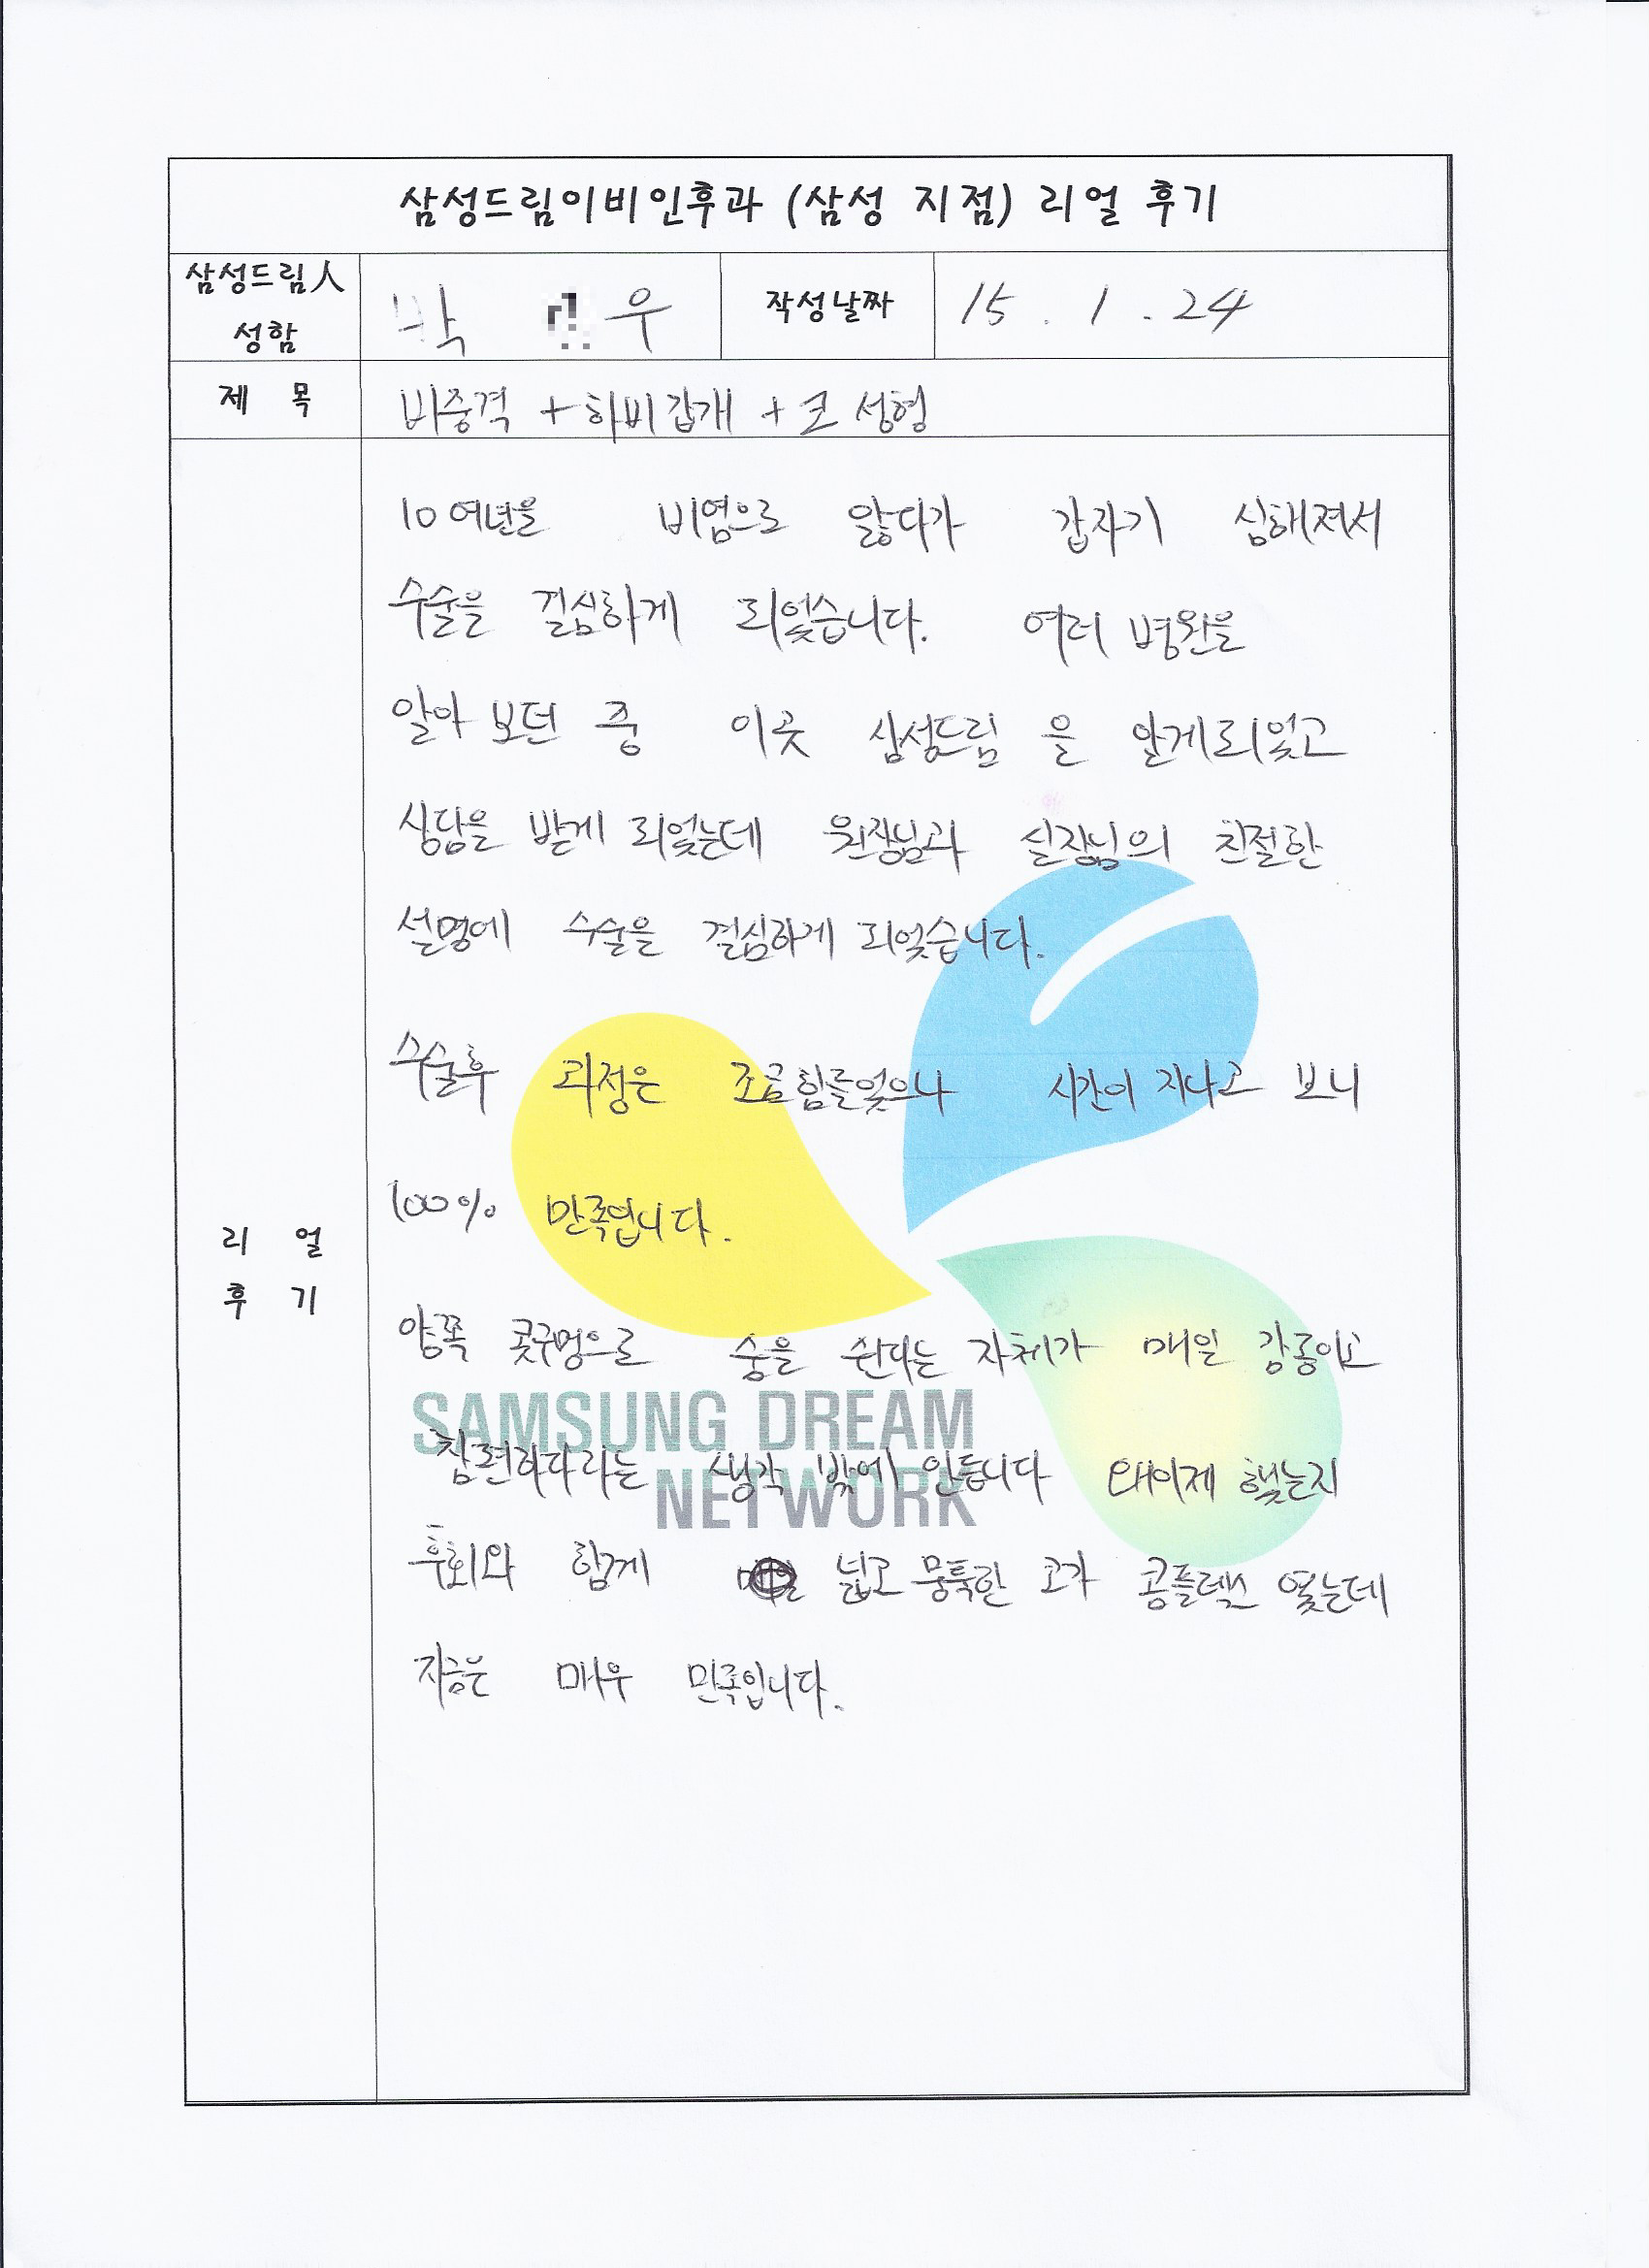 삼성드림이비인후과 (삼성 지점) 리얼 후기
삼성드림人 성함
박 우
작성날짜
15. 1. 24
제 목
비중격 + 하비갑개 + 코 성형
리 얼
후 기
10여년을 비염으로 앓다가 갑자기 심해져서
수술을 결심하게 되엇습니다. 여러 병원을
알아 보던 중 이곳 삼성드림 을 알게되엇고
상담을 받게 되엇는데 원장님과 실장님의 친절한
설명에 수술을 결심하게 되엇습니다.
수술후 과정은 조금힘들엇으나 시간이 지나고 보니
100% 만족입니다.
양쪽 콧구멍으로 숨을 쉰다는 자체가 매일 감동이고
참편하다라는 생각 밖에 안듭니다 왜이제 햇는지
후회와 함께 넓고 뭉툭한 코가 콤플렉스 엿는데
지금은 매우 만족입니다.
SAMSUNG DREAM
NETWORK